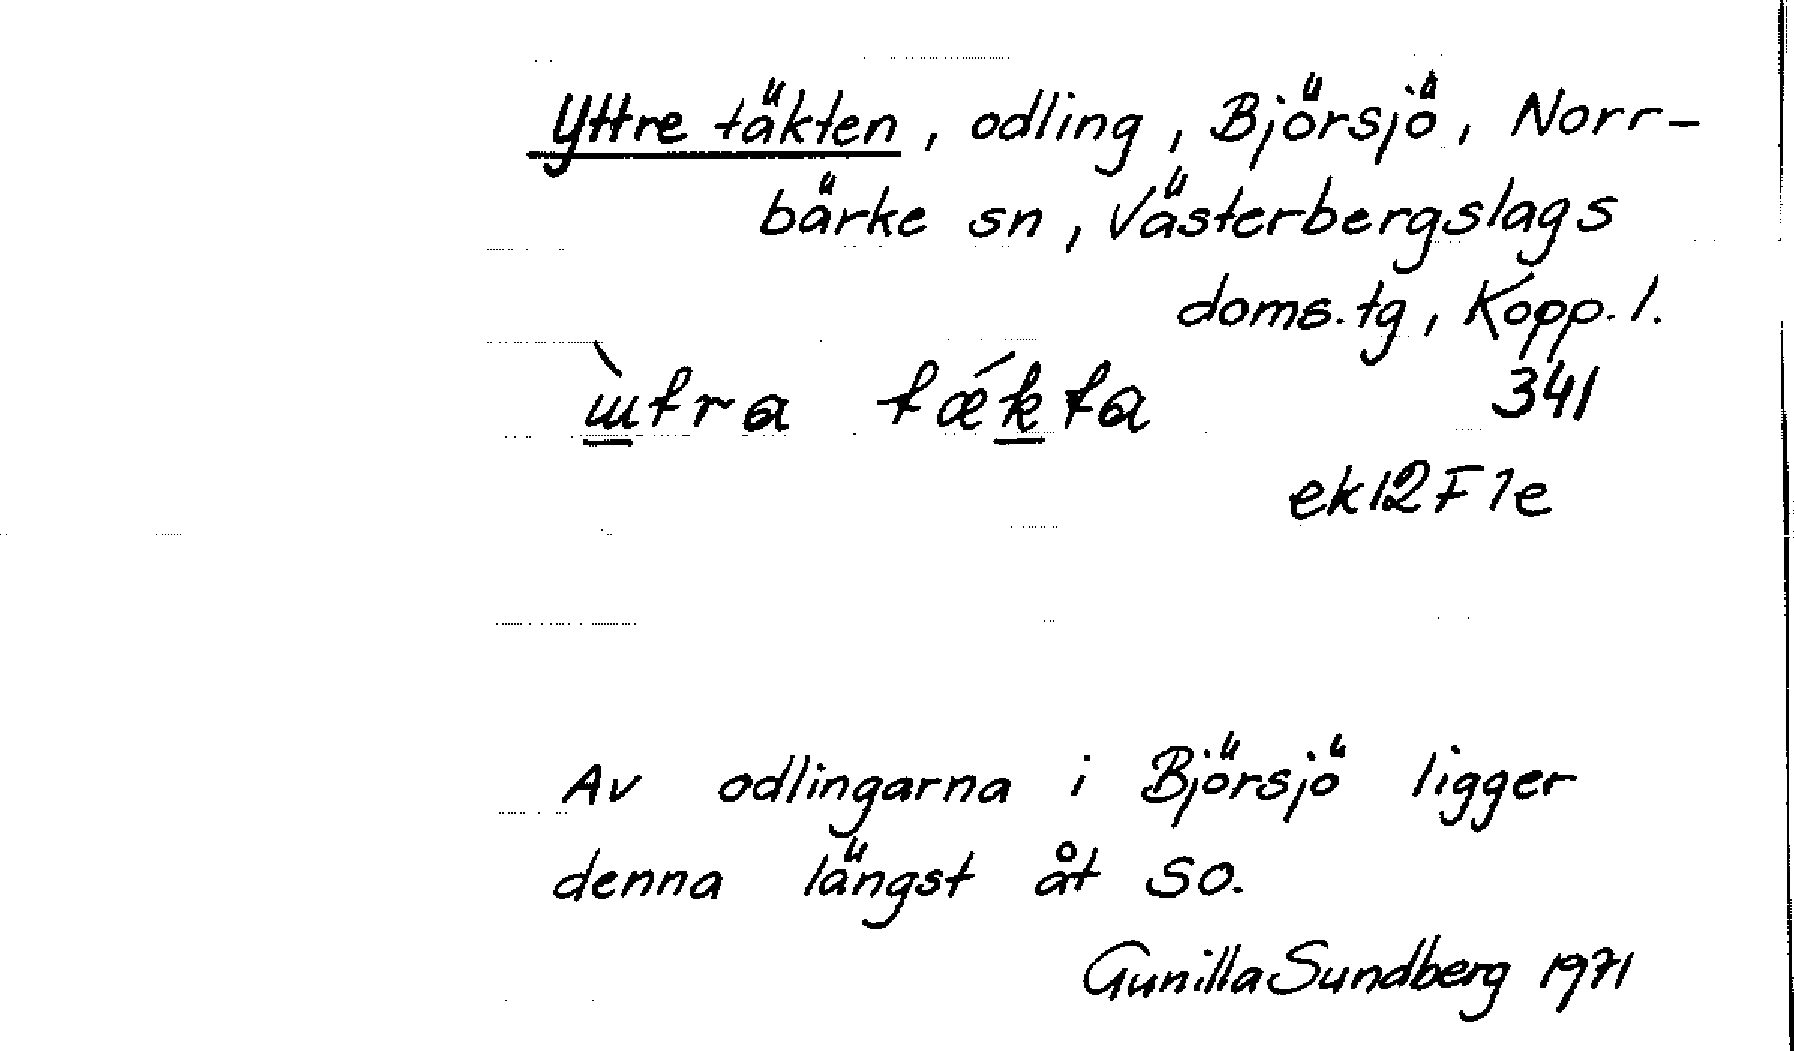 Yttre täkten, odling, Björsjö, Norr-
bärke sn, Västerbergslags
doms.tg, Kopp. l.
341
ek 12 F 1e
Av odlingarna i Björsjö ligger
denna längst åt SO.
Gunilla Sundberg 1971